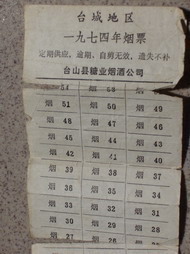 台城地区
一九七四年烟票
定期供应，逾期、自剪无效，遗失不补
台山县糖业烟酒公司
烟 54 烟 53 烟 52
烟 51 烟 50 烟 49
烟 48 烟 47 烟 46
烟 45 烟 44 烟 43
烟 42 烟 41 烟 40
烟 39 烟 38 烟 37
烟 36 烟 35 烟 34
烟 33 烟 32 烟 31
烟 30 烟 29 烟 28
烟 27 烟 26